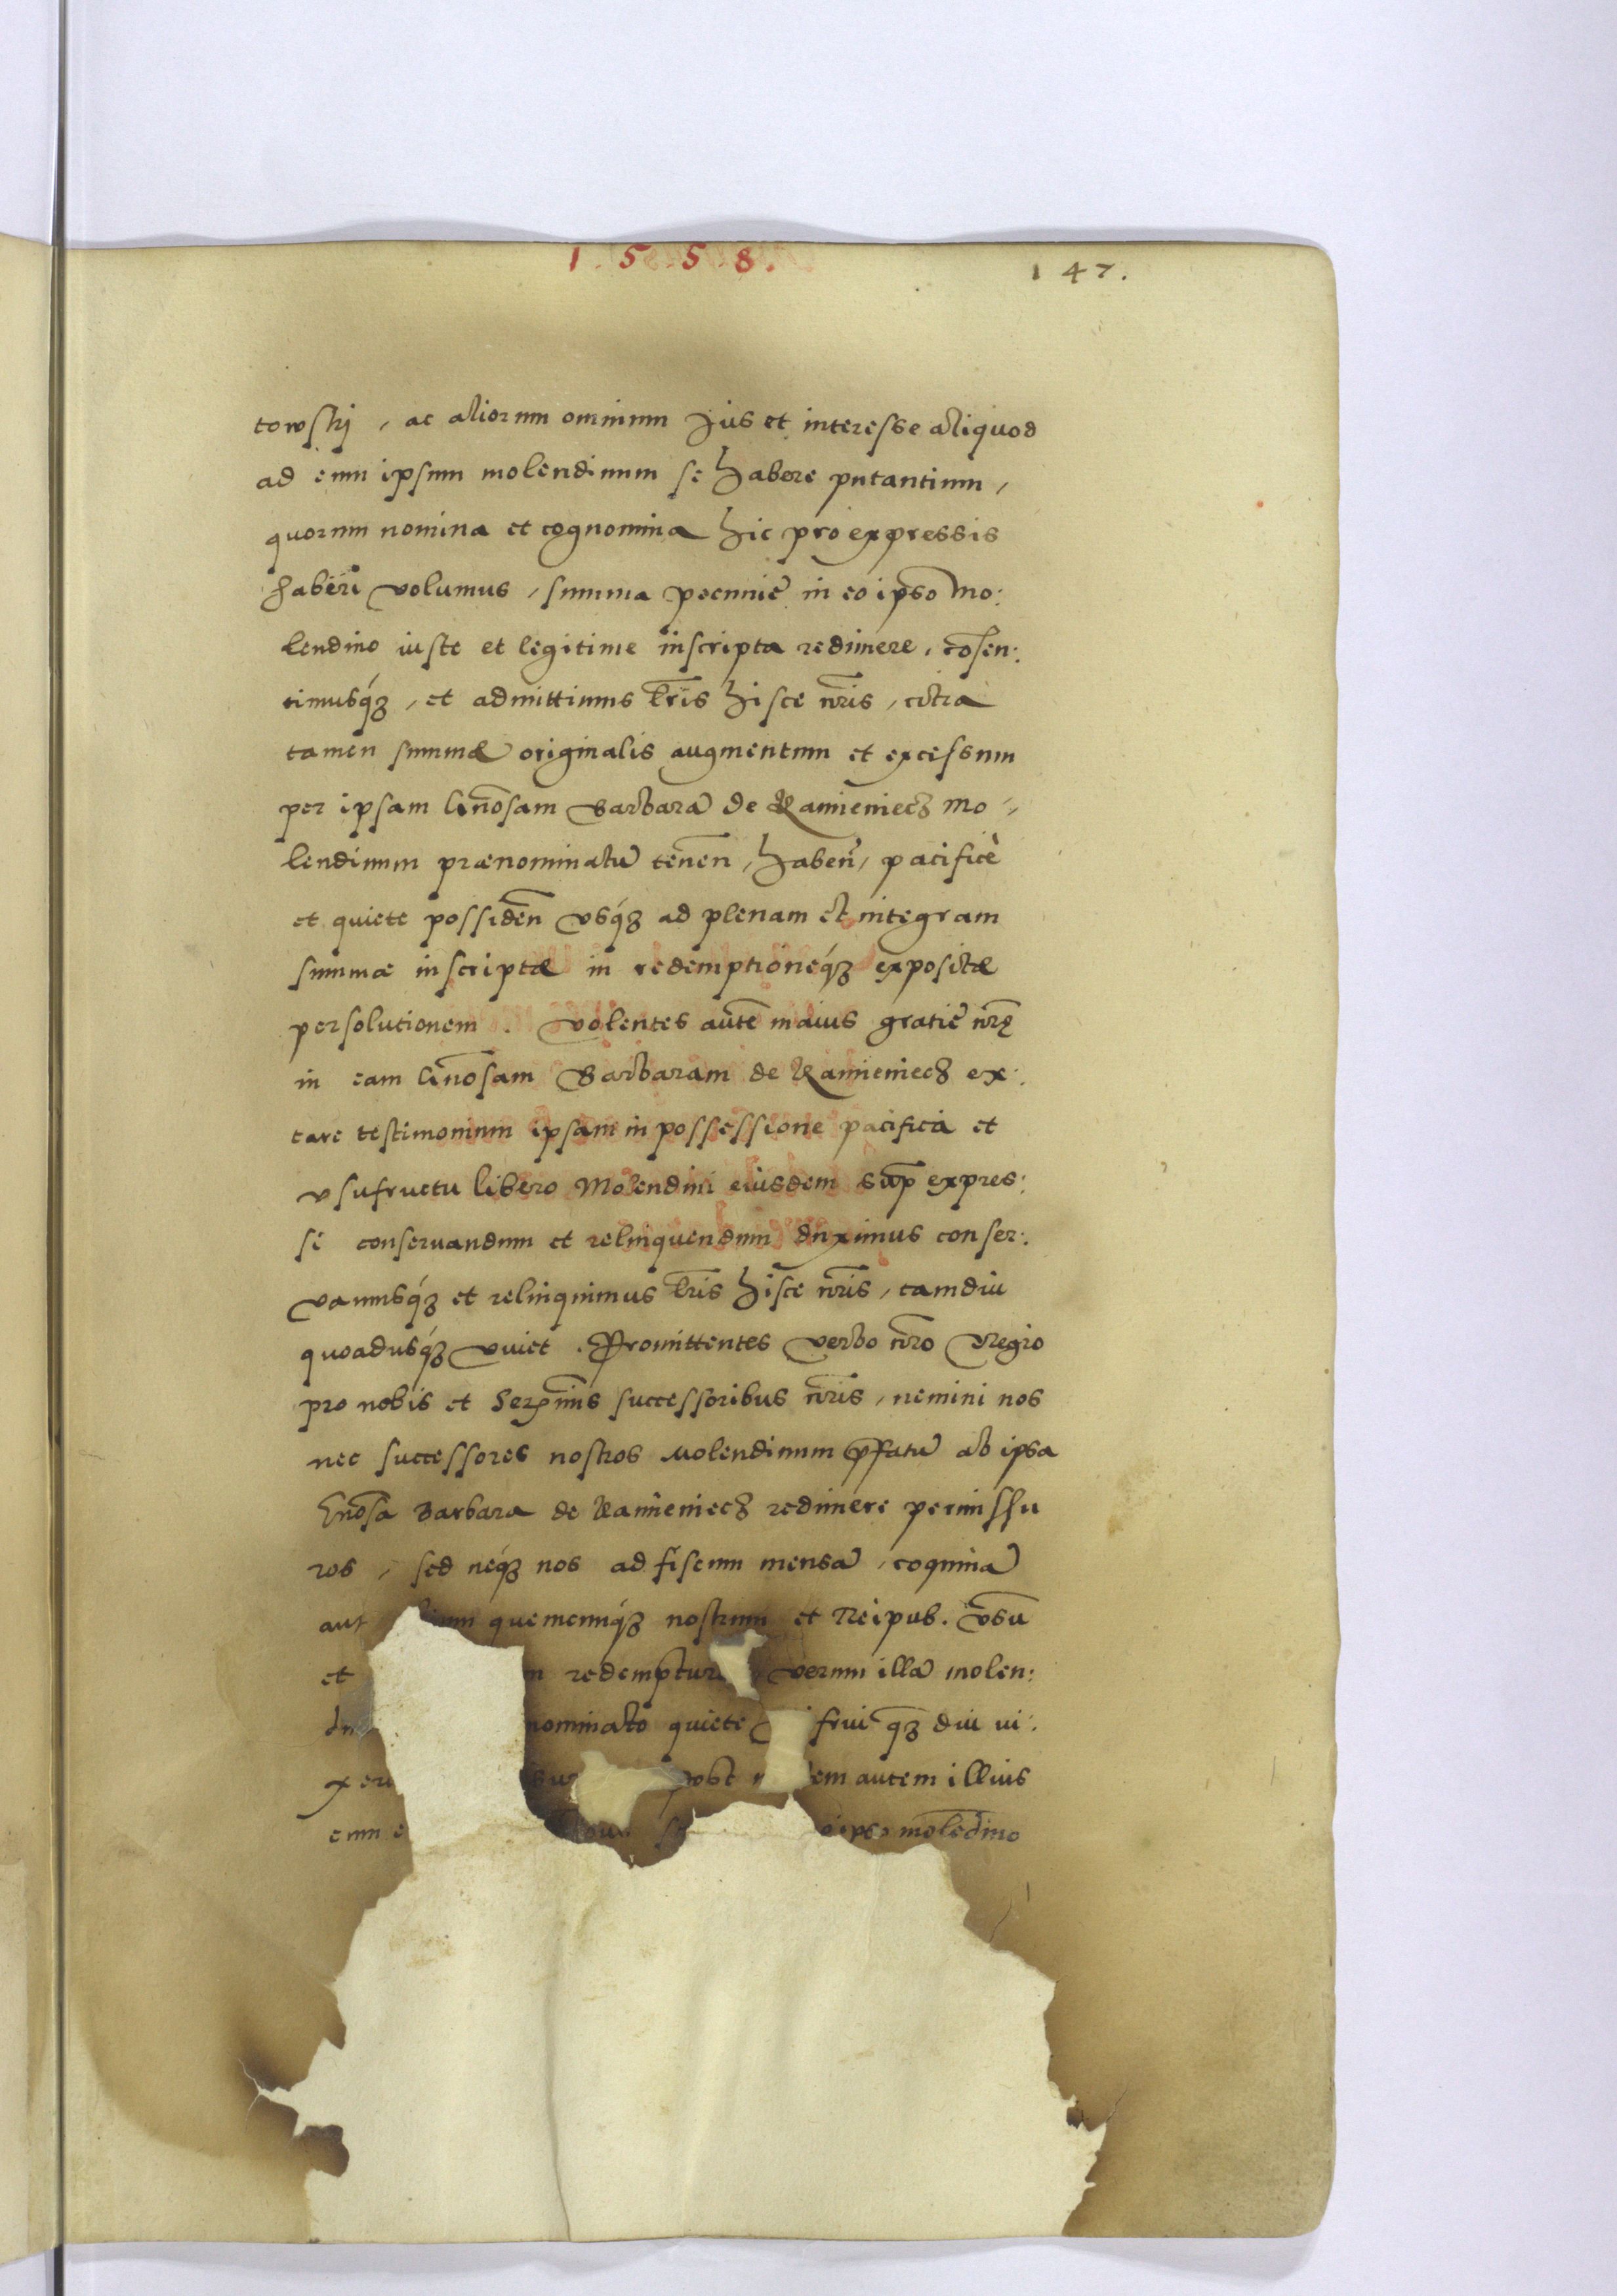 1.5.5.8.
147.
towskj, ac aliorum omnium Jus et interesse aliquod
ad eum ipsum molendinum se habere putantium,
quorum nomina et cognomina hic pro expressis
haberi volumus, summa pecunie in eo ipso Mo:
lendino iuste et legitime inscripta redimere, cosen:
timusq́ꝫ, et admittimus lr̃is hisce nr̃is, citra
tamen summæ originalis augmentum et excessum
per ipsam Gn̄osam Barbarā de Kamieniecz Mo-
lendinum prænominatū tenen̄, haben̄, pacificè
et quiete possiden̄ vsq́ꝫ ad plenam et integram
summæ inscriptæ in redemptioneq́ꝫ expositæ
persolutionem. Volentes autē maius gratiē nr̃ę
in eam Gn̄osam Barbaram de Kamieniecz ex:
tare testimonium ipsam in possessione pacifica et
vsufructu libero Molendini eiusdem sup̄ expres:
si conseruandum et relinquendum duximus conser:
vamusq́ꝫ et relinquimus lr̃is hisce nr̃is, tamdiu
quoadusq́ꝫ viuet. Promittentes verbo nr̃o Regio
pro nobis et Serɱis successoribus nr̃is, nemini nos
nec successores nostros Molendinum p̄fatū ab ipsa
Gn̄osa Barbara de Kamieniecz redimere permissu
ros, sed neq́ꝫ nos ad fiscum mensā, coquinā
aut quemcunq́ꝫ nostrum et Reipub. vsū
et redemptur verum illā molen:
nominato quiete frui q̄ꝫ diu vi:
xeri post em autem illius
eum ipso molēdino